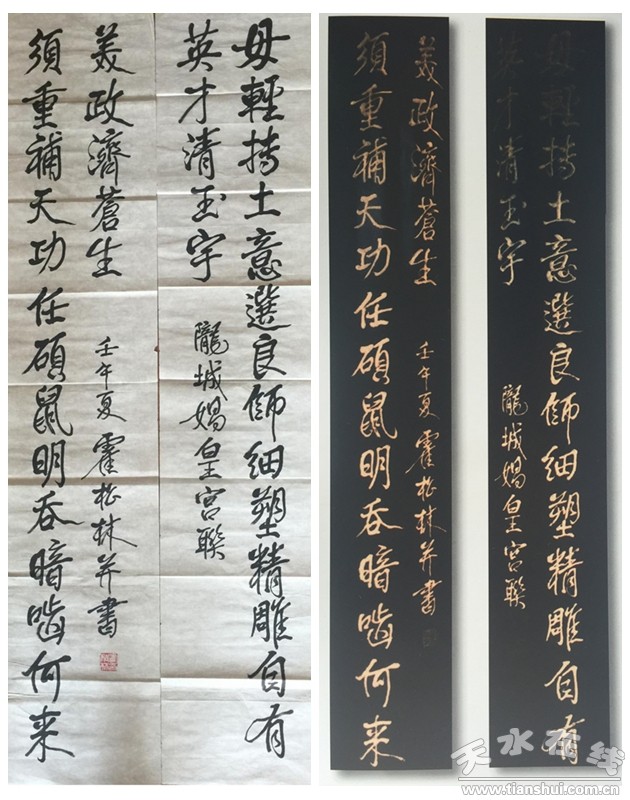 毋輕摶土意選良師細塑精雕自有
英才清玉宇
隴城媧皇宮聯
須重補天功任碩鼠明吞暗嚙何来
美政濟蒼生
壬午夏霍松林并書
毋輕摶土意選良師細塑精雕自有
英才清玉宇
隴城媧皇宮聯
須重補天功任碩鼠明吞暗嚙何来
美政濟蒼生
壬午夏霍松林并書
天水在线
www.tianshui.com.cn